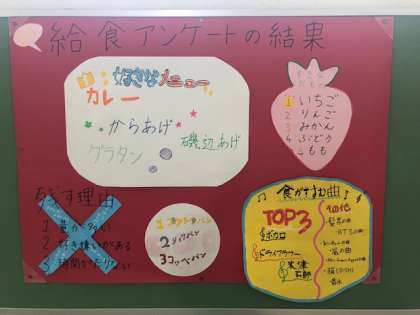 給食アンケートの結果
好きなメニュー
カレー
からあげ
磯辺あげ
グラタン
すきな
くだもの
1 いちご
2 りんご
3 みかん
4 ぶどう
5 もも
残す理由
1 量が多い
2 好き嫌いがある
3 時間がたりない
3 コッペパン
食がすすむ曲
TOP3
ボカロ
ドライフラワー
米津
玄師
その他
BTSの曲
嵐の曲